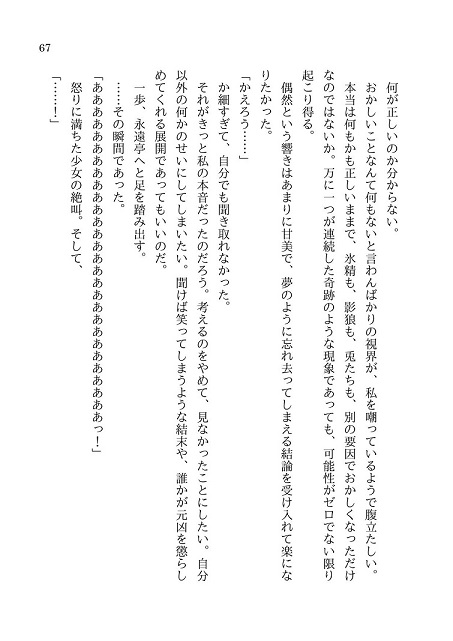 67
何が正しいのか分からない。
おかしいことなんて何もないと言わんばかりの視界が、私を嘲っているようで腹立たしい。
本当は何もかも正しいままで、氷精も、影狼も、兎たちも、別の要因でおかしくなっただけ
なのではないか。万に一つが連続した奇跡のような現象であっても、可能性がゼロでない限り
起こり得る。
偶然という響きはあまりに甘美で、夢のように忘れ去ってしまえる結論を受け入れて楽にな
りたかった。
「かえろう……」
か細すぎて、自分でも聞き取れなかった。
それがきっと私の本音だったのだろう。考えるのをやめて、見なかったことにしたい。自分
以外の何かのせいにしてしまいたい。聞けば笑ってしまうような結末や、誰かが元凶を懲らし
めてくれる展開であってもいいのだ。
一歩、永遠亭へと足を踏み出す。
……その瞬間であった。
「ああああああああああああああああああああああああああああああっ！」
怒りに満ちた少女の絶叫。そして、
「……！」